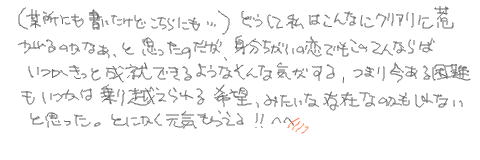 (某所にも書いたけどこちらにも…) どうして私はこんなにクリアリに惹
かれるのかなぁ、と思ったのだが、身分ちがいの恋でもこの二人ならば
いつかきっと成就できるようなそんな気がする、つまり今ある困難
もいつかは乗り越えられる希望、みたいな存在なのかもしれない
と思った。とにかく元気もらえる!! ^^